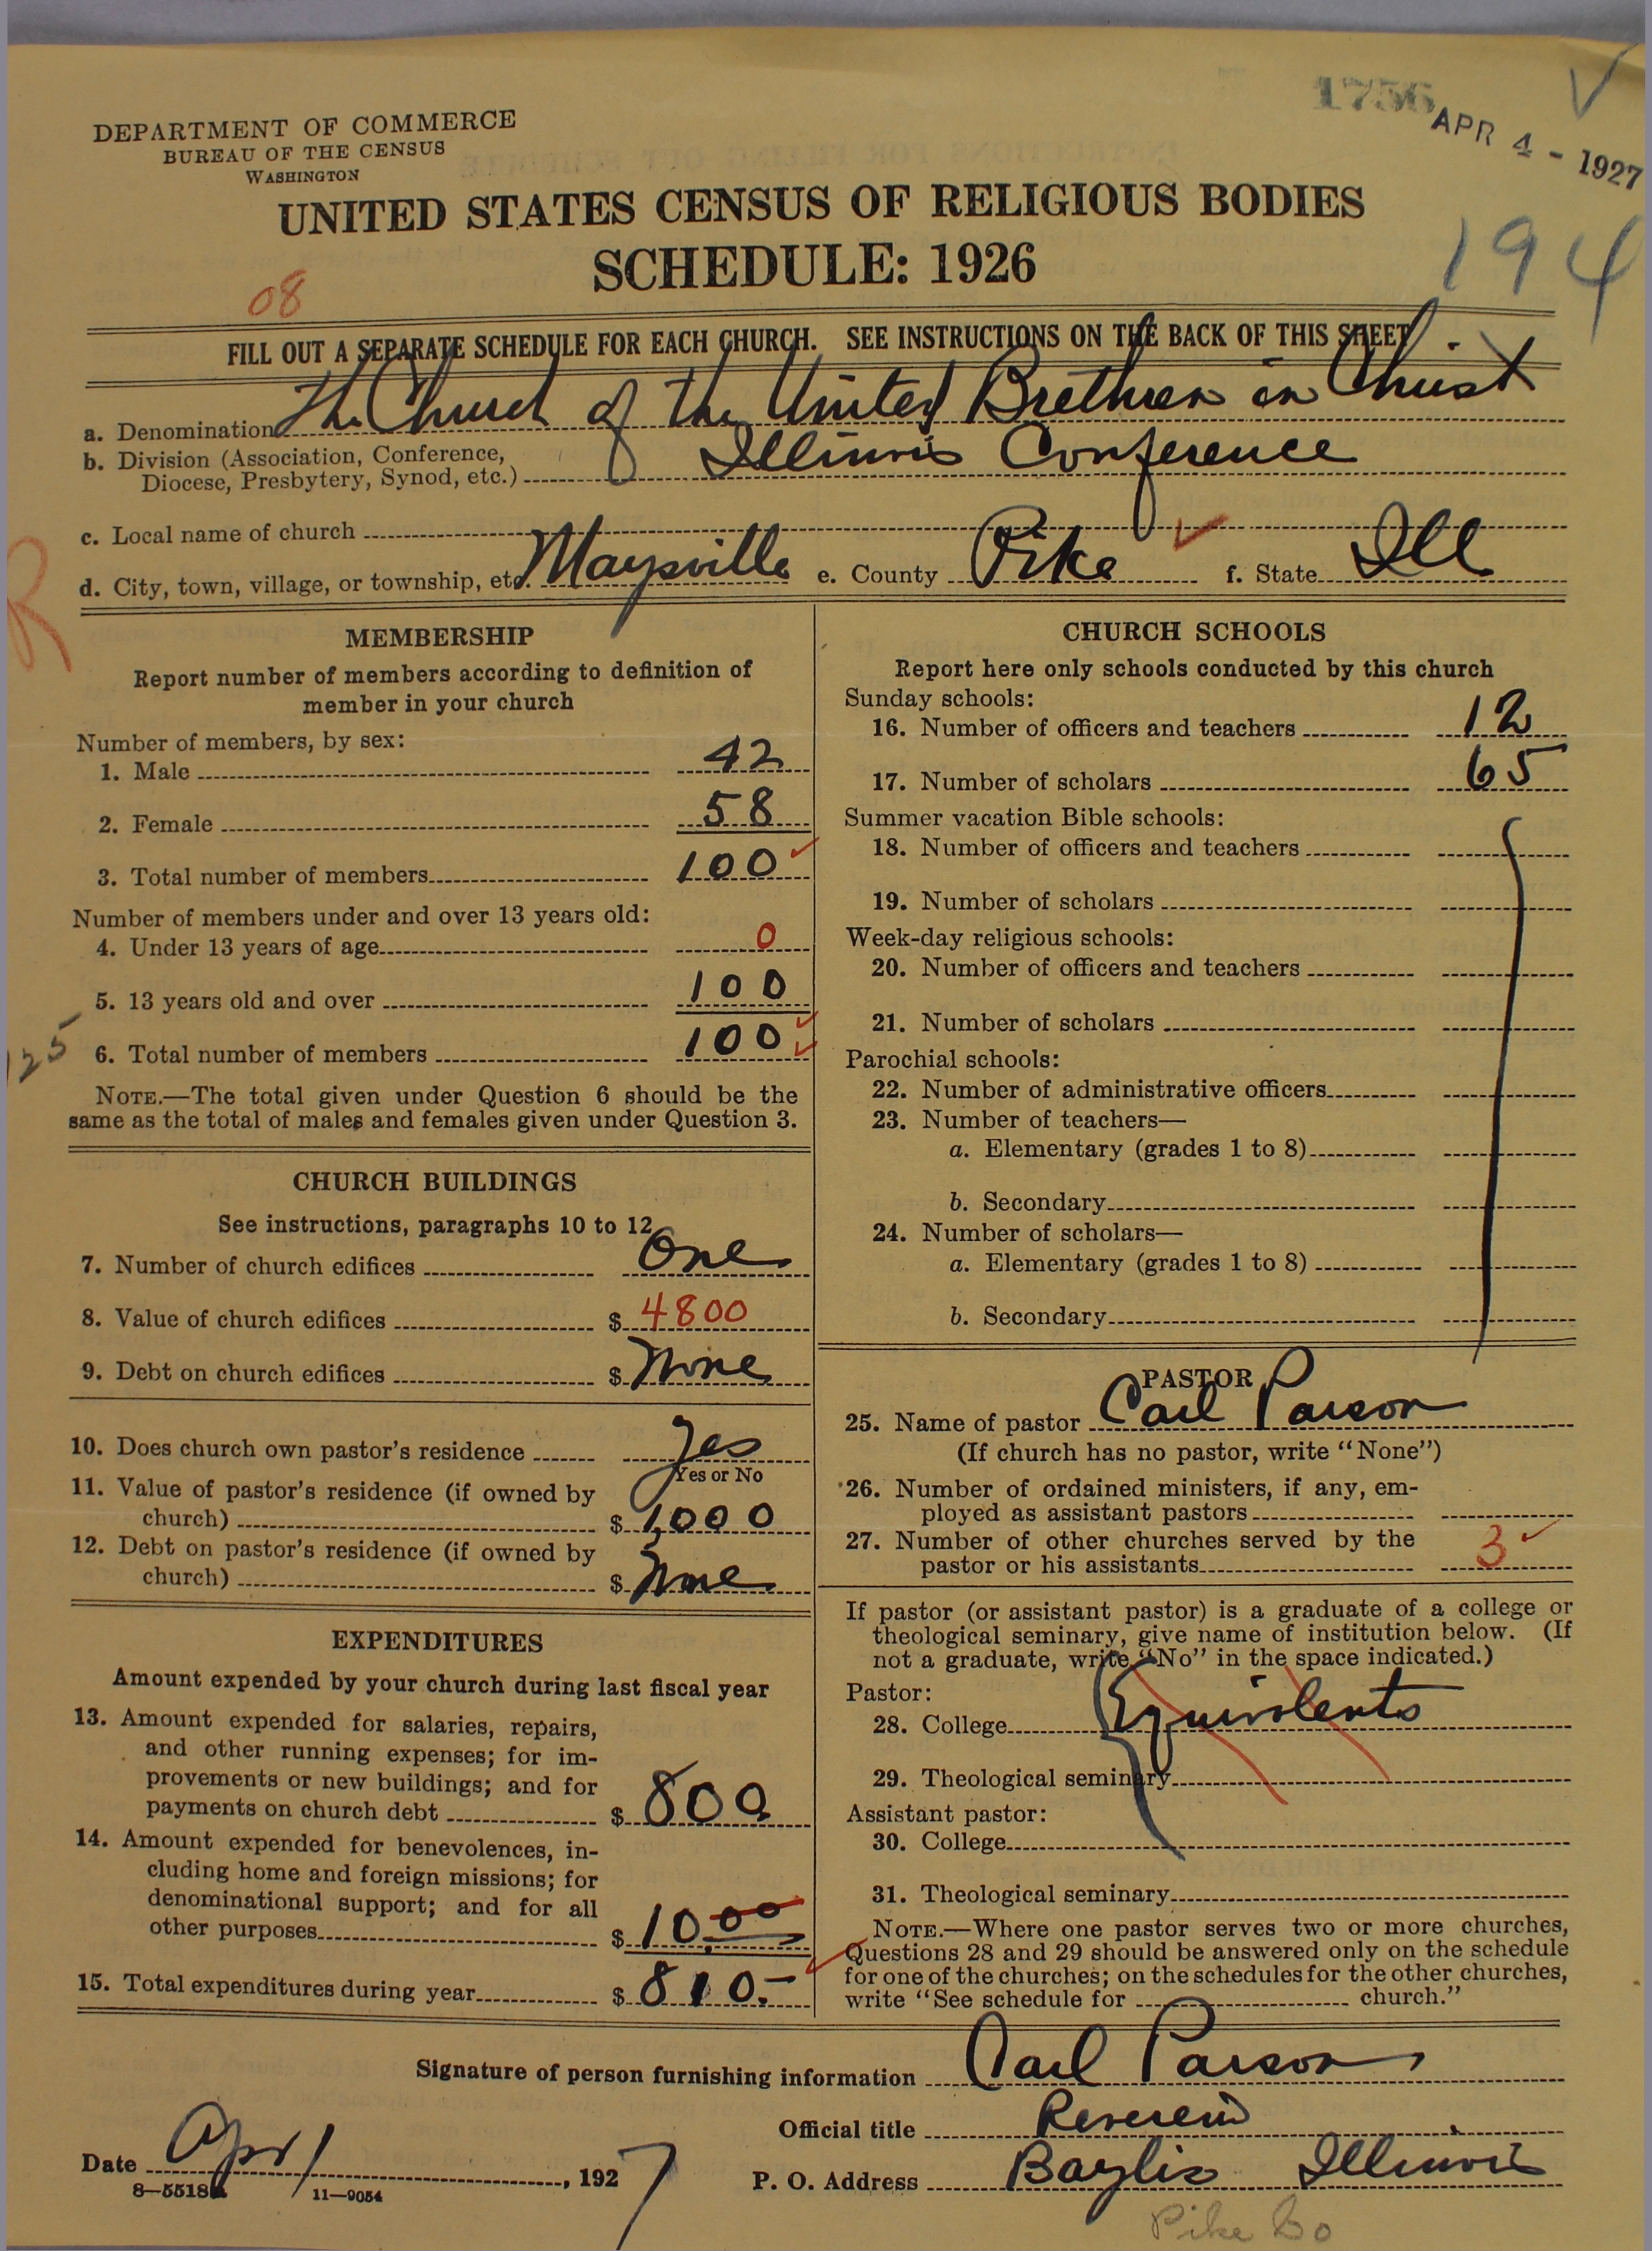 1756
APR 4 - 1927
DEPARTMENT OF COMMERCE
BUREAU OF THE CENSUS
WASHINGTON
UNITED STATES CENSUS OF RELIGIOUS BODIES
SCHEDULE: 1926
194
08
FILL OUT A SEPARATE SCHEDULE FOR EACH CHURCH. SEE INSTRUCTIONS ON THE BACK OF THIS SHEET
a. Denomination The Church of the United Brethren in Christ
b. Division (Association, Conference,
Diocese, Presbytery, Synod, etc.) Illinois Conference
c. Local name of church
d. City, town, village, or township, etc. Maysville e. County Pike f. State Ill
R
MEMBERSHIP
Report number of members according to definition of
member in your church
Number of members, by sex:
1. Male 42
2. Female 58
3. Total number of members 100
Number of members under and over 13 years old:
4. Under 13 years of age 0
5. 13 years old and over 100
6. Total number of members 100
125
NOTE.—The total given under Question 6 should be the
same as the total of males and females given under Question 3.
CHURCH BUILDINGS
See instructions, paragraphs 10 to 12
7. Number of church edifices One
8. Value of church edifices $ 4800
9. Debt on church edifices $ None
10. Does church own pastor's residence Yes
Yes or No
11. Value of pastor's residence (if owned by
church) $ 1,000
12. Debt on pastor's residence (if owned by
church) $ None
EXPENDITURES
Amount expended by your church during last fiscal year
13. Amount expended for salaries, repairs,
and other running expenses; for im-
provements or new buildings; and for
payments on church debt $ 800
14. Amount expended for benevolences, in-
cluding home and foreign missions; for
denominational support; and for all
other purposes $ 10.00
15. Total expenditures during year $ 810.-
CHURCH SCHOOLS
Report here only schools conducted by this church
Sunday schools:
16. Number of officers and teachers 12
17. Number of scholars 65
Summer vacation Bible schools:
18. Number of officers and teachers
19. Number of scholars
Week-day religious schools:
20. Number of officers and teachers
21. Number of scholars
Parochial schools:
22. Number of administrative officers
23. Number of teachers—
a. Elementary (grades 1 to 8)
b. Secondary
24. Number of scholars—
a. Elementary (grades 1 to 8)
b. Secondary
PASTOR
25. Name of pastor Carl Parson
(If church has no pastor, write "None")
26. Number of ordained ministers, if any, em-
ployed as assistant pastors
27. Number of other churches served by the
pastor or his assistants 3
If pastor (or assistant pastor) is a graduate of a college or
theological seminary, give name of institution below. (If
not a graduate, write "No" in the space indicated.)
Pastor:
28. College Equivalents
29. Theological seminary
Assistant pastor:
30. College
31. Theological seminary
NOTE.—Where one pastor serves two or more churches,
Questions 28 and 29 should be answered only on the schedule
for one of the churches; on the schedules for the other churches,
write "See schedule for church."
Signature of person furnishing information Carl Parson
Official title Reverend
Date Apr 1, 1927
P. O. Address Baylis Illinois
8—5518a 11—9054
Pike Co